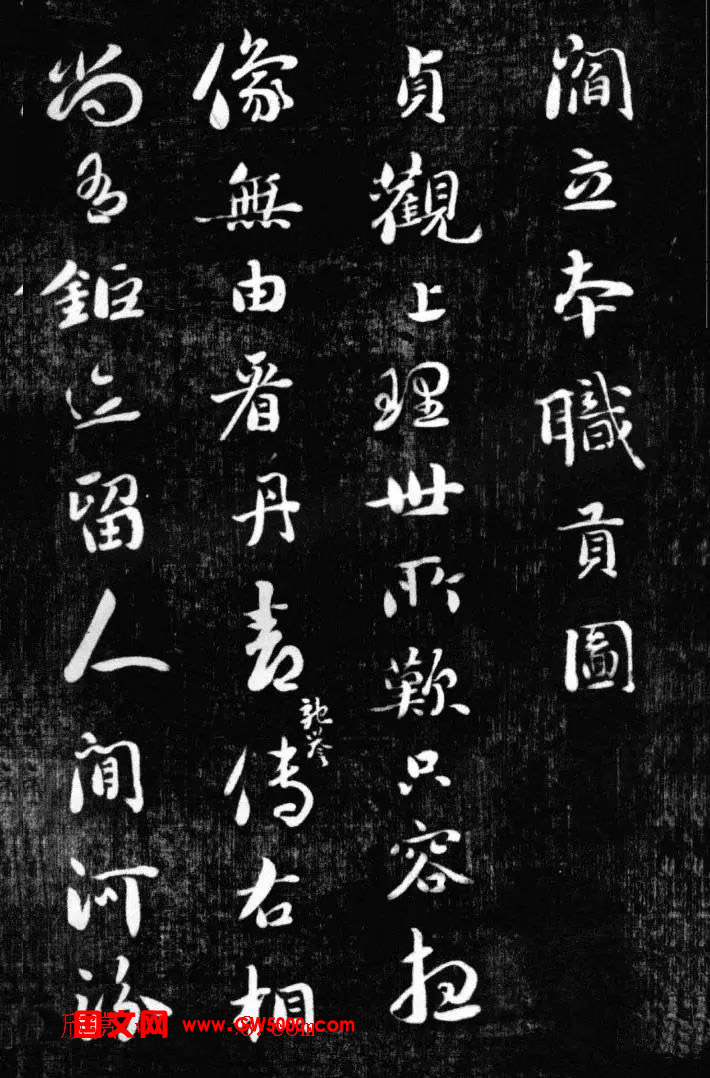 閻立本職貢圖
貞觀上理世所歎只容想
像無由看丹青傳右相
尚有鉅迹留人間河汾
国文网 www.GW5000.com